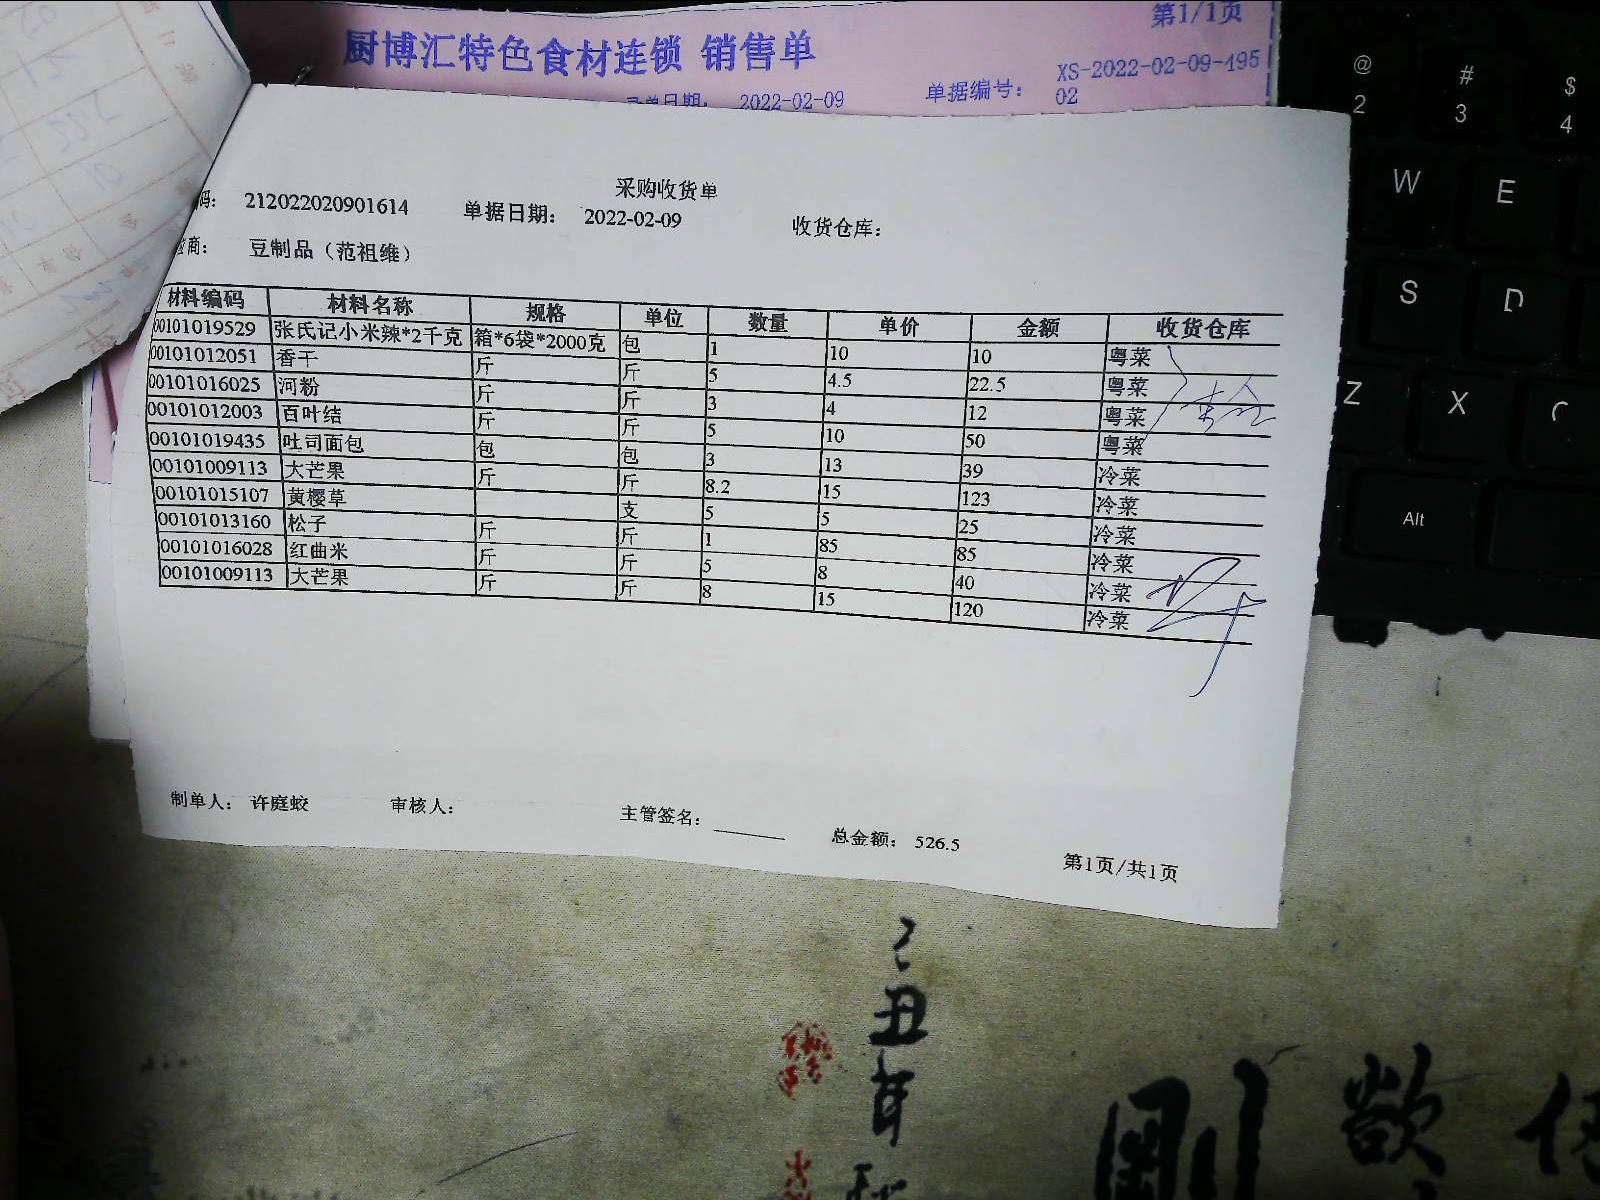 第1/1页
厨博汇特色食材连锁 销售单
2022-02-09 单据编号: XS-2022-02-09-495
02
采购收货单
码: 212022020901614 单据日期: 2022-02-09 收货仓库:
商: 豆制品（范祖维）
材料编码 材料名称 规格 单位 数量 单价 金额 收货仓库
00101019529 张氏记小米辣*2千克 箱*6袋*2000克 包 1 10 10 粤菜
00101012051 香干 斤 斤 5 4.5 22.5 粤菜
00101016025 河粉 斤 斤 3 4 12 粤菜
00101012003 百叶结 斤 斤 5 10 50 粤菜
00101019435 吐司面包 包 包 3 13 39 冷菜
00101009113 大芒果 斤 斤 8.2 15 123 冷菜
00101015107 黄樱草 支 5 5 25 冷菜
00101013160 松子 斤 斤 1 85 85 冷菜
00101016028 红曲米 斤 斤 5 8 40 冷菜
00101009113 大芒果 斤 斤 8 15 120 冷菜
制单人: 许庭蛟 审核人: 主管签名: 总金额: 526.5
第1页/共1页
@ 2 # 3 $ 4
W E
S D
Z X
Alt
丑年
剛 欲